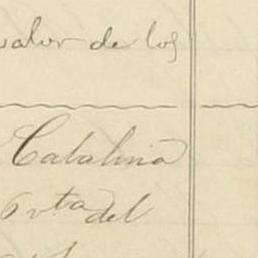 valor de los
Catalina
6 vta del